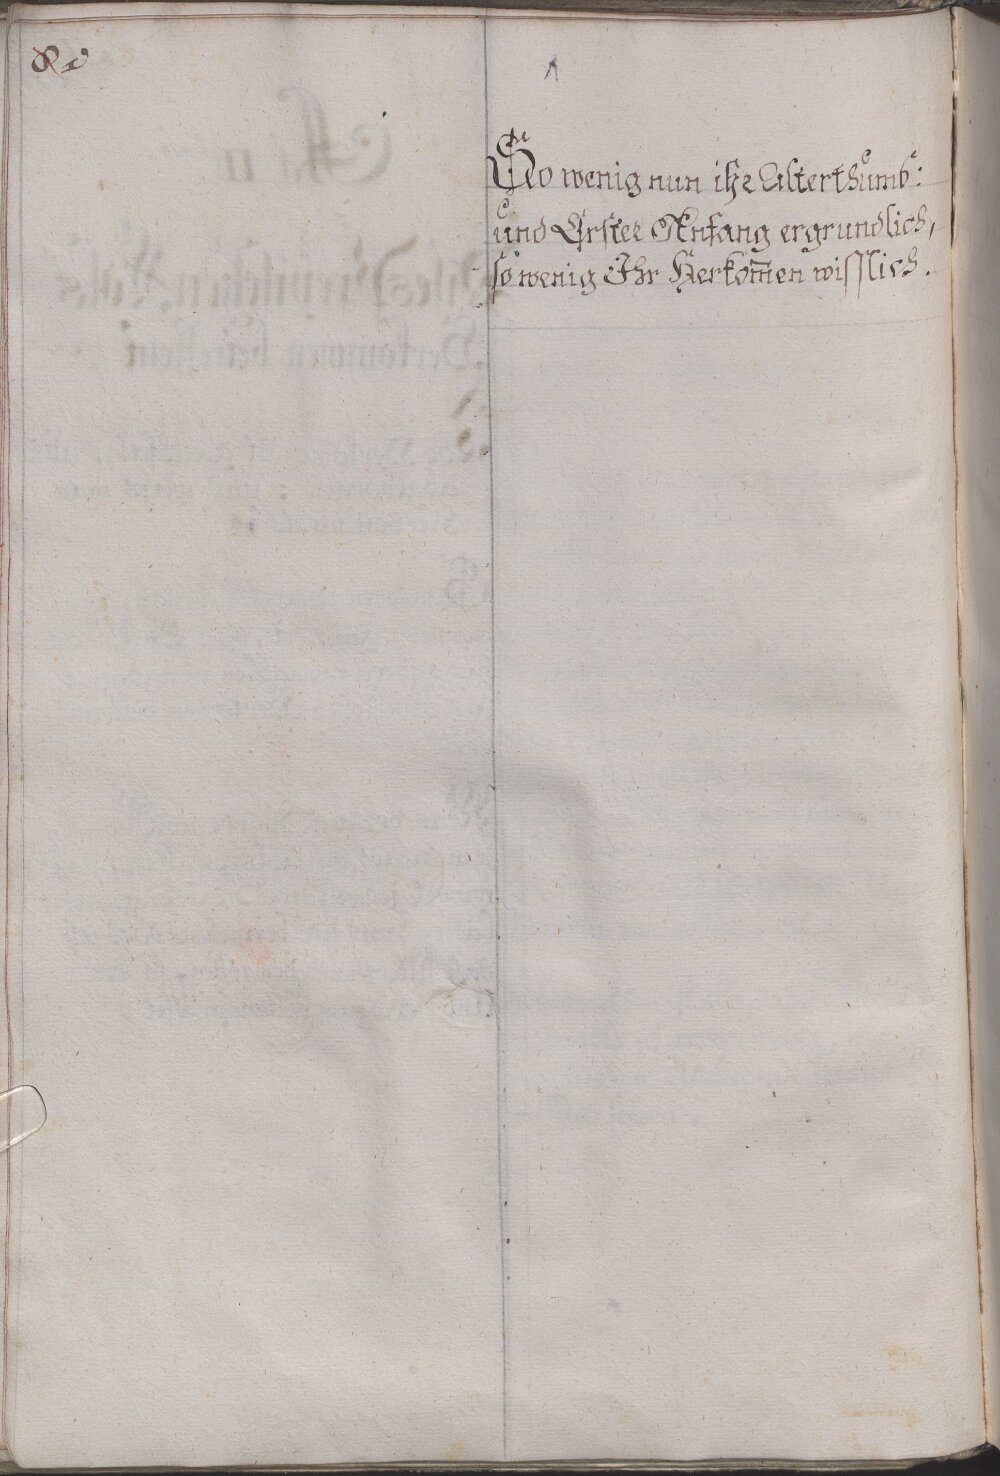 So wenig nun ihr Alterthumb:
und Erster Anfang ergrundlich,
so wenig Ihr Herkom̅en wisslich.